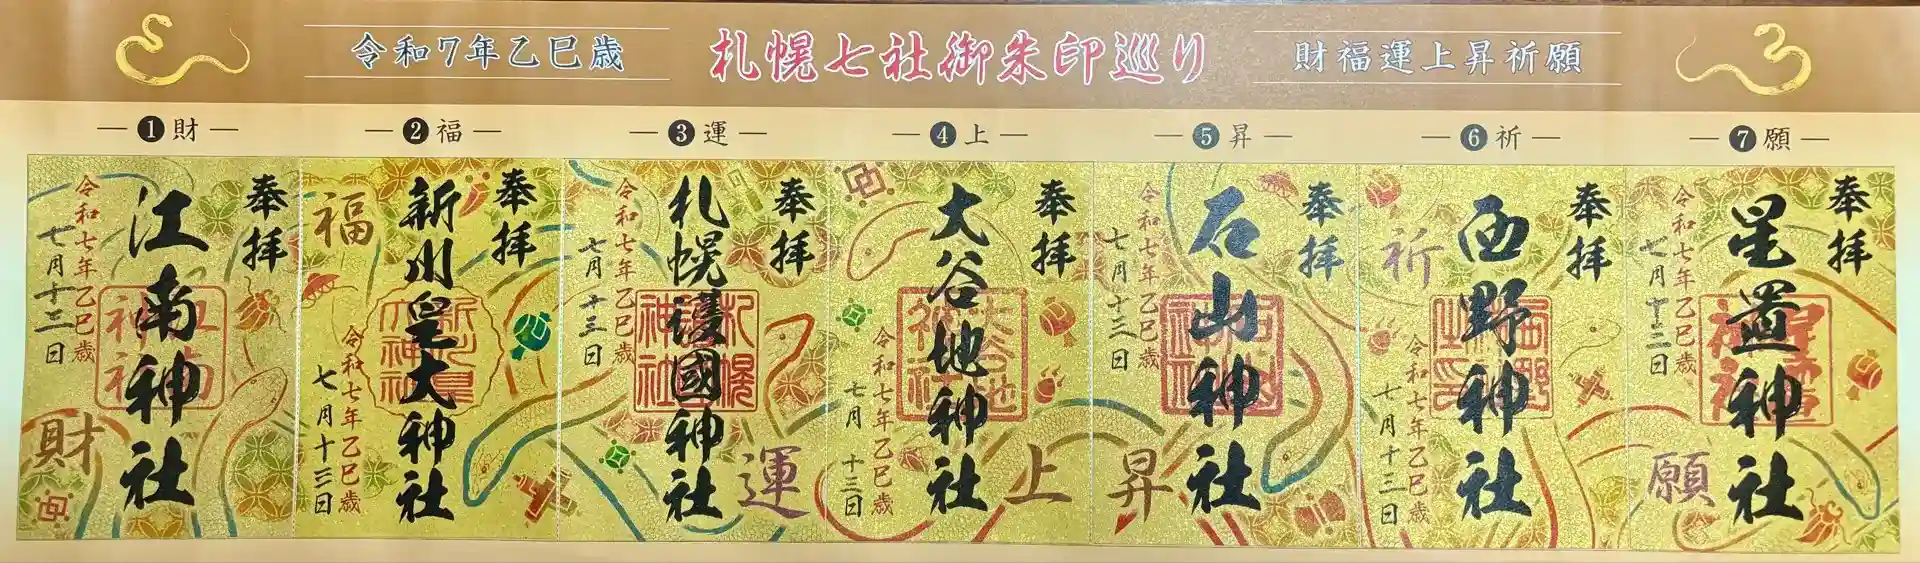 令和7年乙巳歳
札幌七社御朱印巡り
財福運上昇祈願
❶財
❷福
❸運
❹上
❺昇
❻祈
❼願
奉拝
江南神社
江南神社
令和七年乙巳歳
七月十二日
財
奉拝
新川皇大神社
新川皇大神社
福
令和七年乙巳歳
七月十三日
奉拝
札幌護國神社
札幌護國神社
令和七年乙巳歳
七月十三日
運
奉拝
大谷地神社
大谷地神社
令和七年乙巳歳
七月十三日
上
奉拝
石山神社
石山神社
令和七年乙巳歳
七月十三日
昇
奉拝
西野神社
西野神社之印
祈
令和七年乙巳歳
七月十三日
奉拝
星置神社
星置神社
令和七年乙巳歳
七月十二日
願